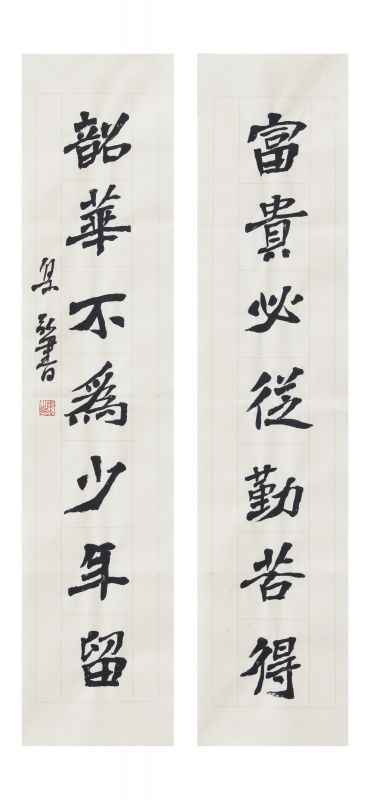 富貴必從勤苦得
韶華不爲少年留
弘書